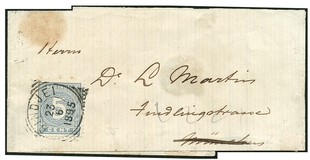 Herrn
Dr. L Martin
Findlingstrasse
München
NDJEI
23
6
1895
5
CENT